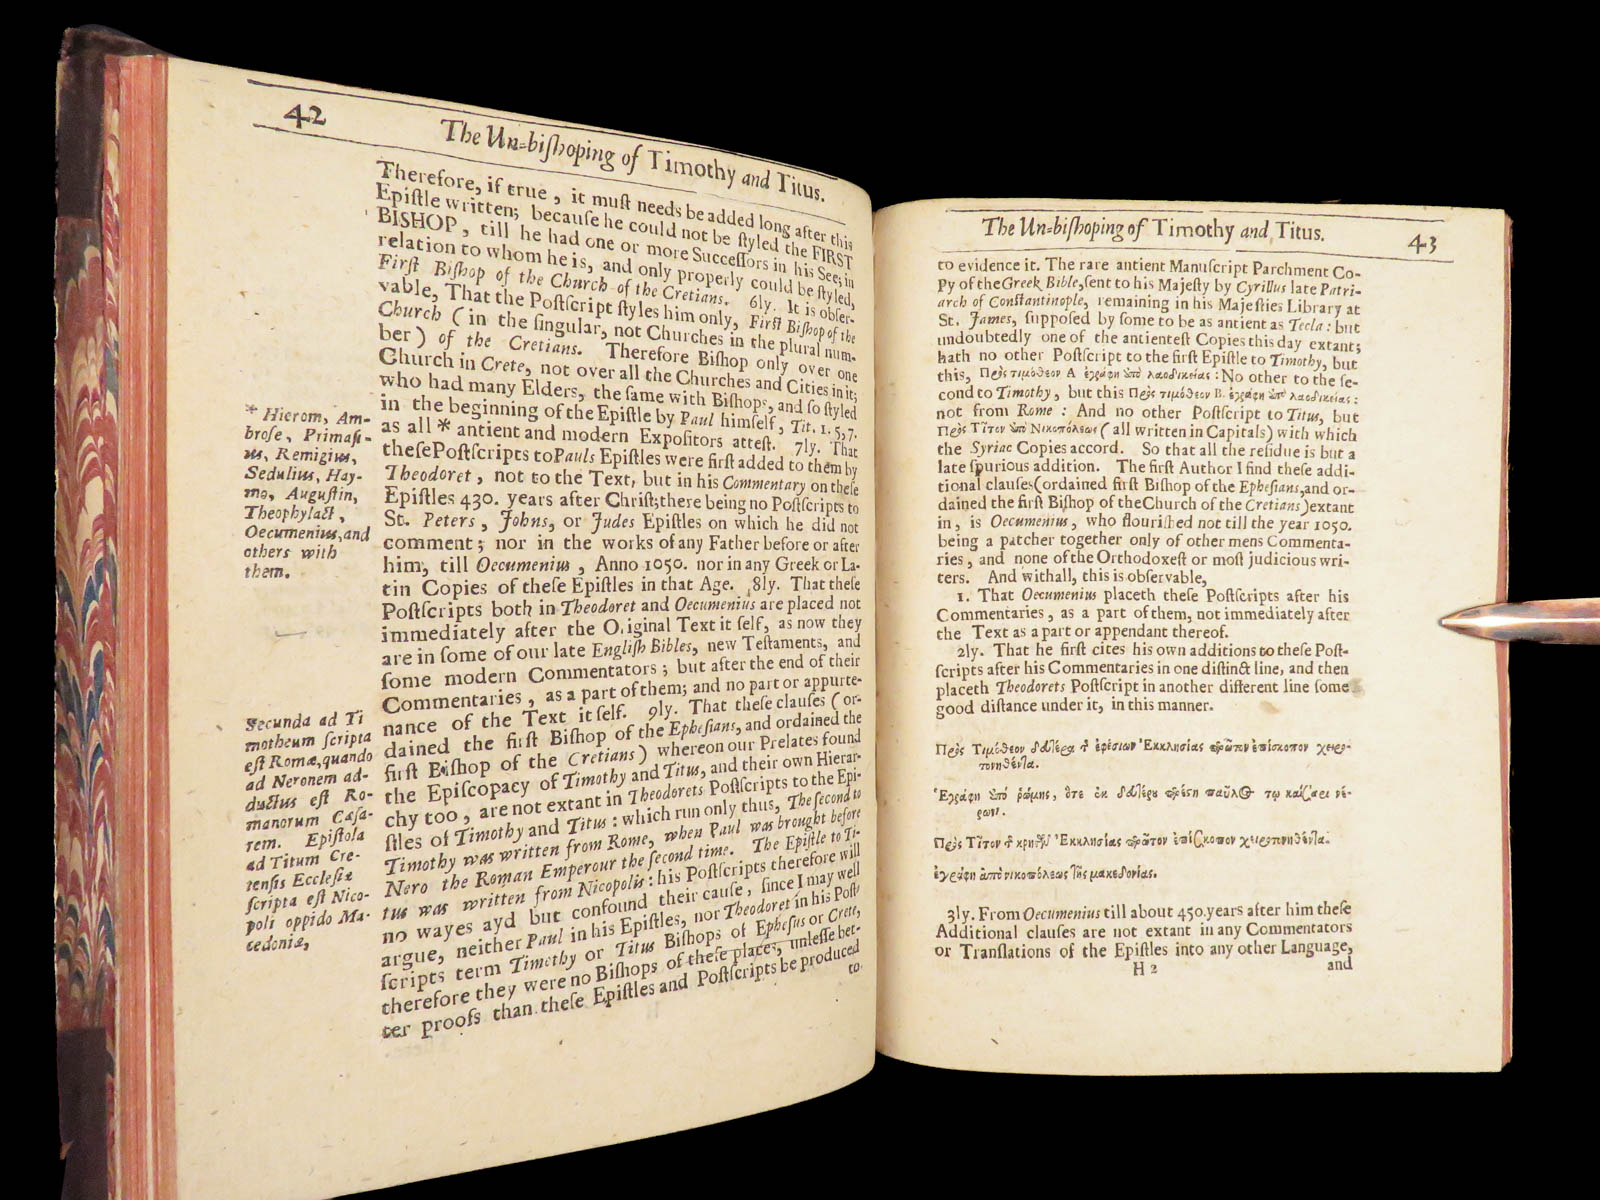 42
The Un-biſhoping of Timothy and Titus.
Therefore, if true, it muſt needs be added long after this
Epiſtle written; becauſe he could not be ſtyled the FIRST
BISHOP, till he had one or more Succeſſors in his See; in
relation to whom he is, and only properly could be ſtyled,
Firſt Biſhop of the Church of the Cretians. 6ly. It is obſer-
vable, That the Poſtſcript ſtyles him only, Firſt Biſhop of the
Church (in the ſingular, not Churches in the plural num-
ber) of the Cretians. Therefore Biſhop only over one
Church in Crete, not over all the Churches and Cities in it;
who had many Elders, the ſame with Biſhops, and ſo ſtyled
in the beginning of the Epiſtle by Paul himſelf, Tit. 1. 5, 7.
as all * antient and modern Expoſitors atteſt. 7ly. That
theſe Poſtſcripts to Pauls Epiſtles were firſt added to them by
Theodoret, not to the Text, but in his Commentary on theſe
Epiſtles 430. years after Chriſt; there being no Poſtſcripts to
St. Peters, Johns, or Judes Epiſtles on which he did not
comment; nor in the works of any Father before or after
him, till Oecumenius, Anno 1050. nor in any Greek or La-
tin Copies of theſe Epiſtles in that Age. 8ly. That theſe
Poſtſcripts both in Theodoret and Oecumenius are placed not
immediately after the Original Text it ſelf, as now they
are in ſome of our late Engliſh Bibles, new Teſtaments, and
ſome modern Commentators; but after the end of their
Commentaries, as a part of them; and no part or appurte-
nance of the Text it ſelf. 9ly. That theſe clauſes (or-
dained the firſt Biſhop of the Epheſians, and ordained the
firſt Biſhop of the Cretians) whereon our Prelates found
the Epiſcopacy of Timothy and Titus, and their own Hierar-
chy too, are not extant in Theodorets Poſtſcripts to the Epi-
ſtles of Timothy and Titus: which run only thus, The ſecond to
Timothy was written from Rome, when Paul was brought before
Nero the Roman Emperour the ſecond time. The Epiſtle to Ti-
tus was written from Nicopolis: his Poſtſcripts therefore will
no wayes ayd but confound their cauſe, ſince I may well
argue, neither Paul in his Epiſtles, nor Theodoret in his Poſt-
ſcripts term Timothy or Titus Biſhops of Epheſus or Crete,
therefore they were no Biſhops of theſe places, unleſſe bet-
ter proofs than theſe Epiſtles and Poſtſcripts be produced
to
* Hierom, Am-
broſe, Primaſi-
us, Remigius,
Sedulius, Hay-
mo, Auguſtin,
Theophylact,
Oecumenius, and
others with
them.
Secunda ad Ti
motheum ſcripta
eſt Romæ, quando
ad Neronem ad-
ductus eſt Ro-
manorum Cæſa-
rem. Epiſtola
ad Titum Cre-
tenſis Eccleſiæ
ſcripta eſt Nico-
poli oppido Ma-
cedoniæ,
The Un-biſhoping of Timothy and Titus.
43
to evidence it. The rare antient Manuſcript Parchment Co-
py of the Greek Bible, ſent to his Majeſty by Cyrillus late Patri-
arch of Conſtantinople, remaining in his Majeſties Library at
St. James, ſuppoſed by ſome to be as antient as Tecla: but
undoubtedly one of the antienteſt Copies this day extant;
hath no other Poſtſcript to the firſt Epiſtle to Timothy, but
this, Πρὸς τιμόθεον Α ἐγράφη ἀπὸ λαοδικείας: No other to the ſe-
cond to Timothy, but this Πρὸς τιμόθεον Β. ἐγράφη ἀπὸ λαοδικείας:
not from Rome: And no other Poſtſcript to Titus, but
Πρὸς Τῖτον ἀπὸ Νικοπόλεως (all written in Capitals) with which
the Syriac Copies accord. So that all the reſidue is but a
late ſpurious addition. The firſt Author I find theſe addi-
tional clauſes (ordained firſt Biſhop of the Epheſians, and or-
dained the firſt Biſhop of the Church of the Cretians) extant
in, is Oecumenius, who flouriſhed not till the year 1050.
being a patcher together only of other mens Commenta-
ries, and none of the Orthodoxeſt or moſt judicious wri-
ters. And withall, this is obſervable,
1. That Oecumenius placeth theſe Poſtſcripts after his
Commentaries, as a part of them, not immediately after
the Text as a part or appendant thereof.
2ly. That he firſt cites his own additions to theſe Poſt-
ſcripts after his Commentaries in one diſtinct line, and then
placeth Theodorets Poſtſcript in another different line ſome
good diſtance under it, in this manner.
Πρὸς Τιμόθεον δευτέρα τῆς ἐφεσίων Ἐκκλησίας πρῶτον ἐπίσκοπον χειρο-
τονηθέντα.
Ἐγράφη ἀπὸ ῥώμης, ὅτε ἐκ δευτέρου παρέστη παῦλος τῷ καίσαρι νέ-
ρωνι.
Πρὸς Τῖτον τῆς κρητῶν Ἐκκλησίας πρῶτον ἐπίσκοπον χειροτονηθέντα.
ἐγράφη ἀπὸ νικοπόλεως τῆς μακεδονίας.
3ly. From Oecumenius till about 450. years after him theſe
Additional clauſes are not extant in any Commentators
or Tranſlations of the Epiſtles into any other Language,
H 2
and